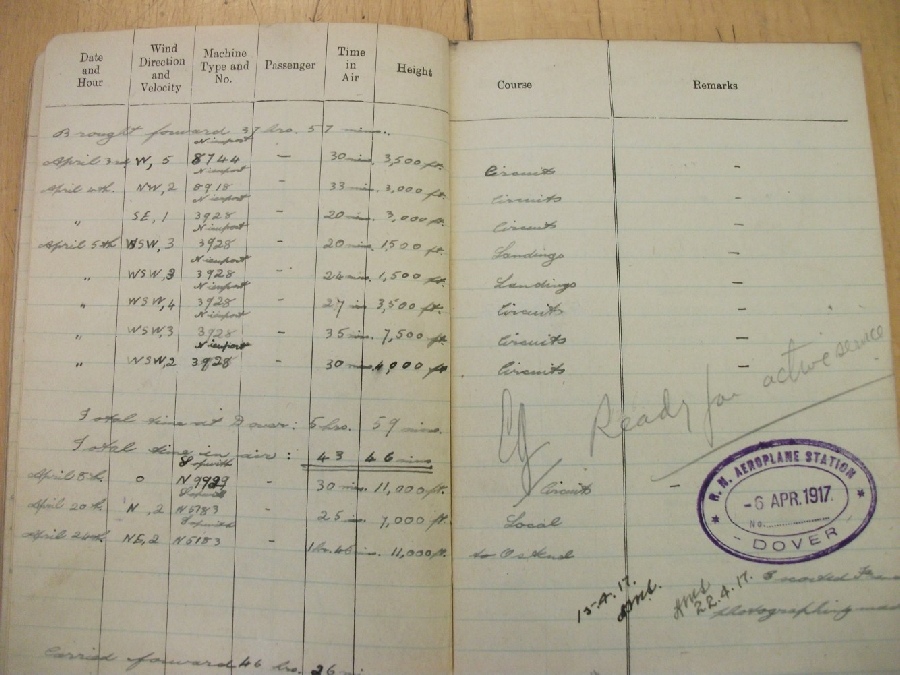 Date and Hour | Wind Direction and Velocity | Machine Type and No. | Passenger | Time in Air | Height | Course | Remarks
Brought forward 37 hrs. 57 mins.
Nieuport
April 3rd W, 5 8744 - 30 mins. 3,500 ft. Circuits -
Nieuport
April 4th. NW, 2 8918 - 33 mins. 3,000 ft. Circuits -
Nieuport
" SE, 1 3928 - 20 mins. 3,000 ft. Circuits -
Nieuport
April 5th WSW, 3 3928 - 20 mins. 1,500 ft. Landings -
Nieuport
" WSW, 3 3928 - 24 mins. 1,500 ft. Landings -
Nieuport
" WSW, 4 3928 - 27 mins. 3,500 ft. Circuits -
Nieuport
" WSW, 3 3928 - 35 mins. 7,500 ft. Circuits -
Nieuport
" WSW, 2 3928 - 30 mins. 4,000 ft. Circuits -
Ready for active service
Total time at Dover: 5 hrs. 59 mins.
Total time in air: 43 46 mins
Sopwith
April 8th. 0 - 30 mins. 11,000 ft. Circuits -
Sopwith
April 20th N, 2 N5183 - 25 7,000 ft. Local
Sopwith
April 24th NE, 2 N5183 - 1 hr. 11,000 ft. to Ostend
R. N. AEROPLANE STATION
-6 APR. 1917.
No.
DOVER
13-4.17.
22.4.17.
Escorted
photographing
Carried forward 46 hrs. 26